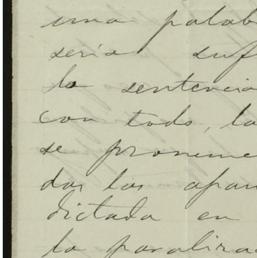 una palab
seria suf
la sentencia
con todo, la
se pronunc
das las apa
dictada en
la paraliza